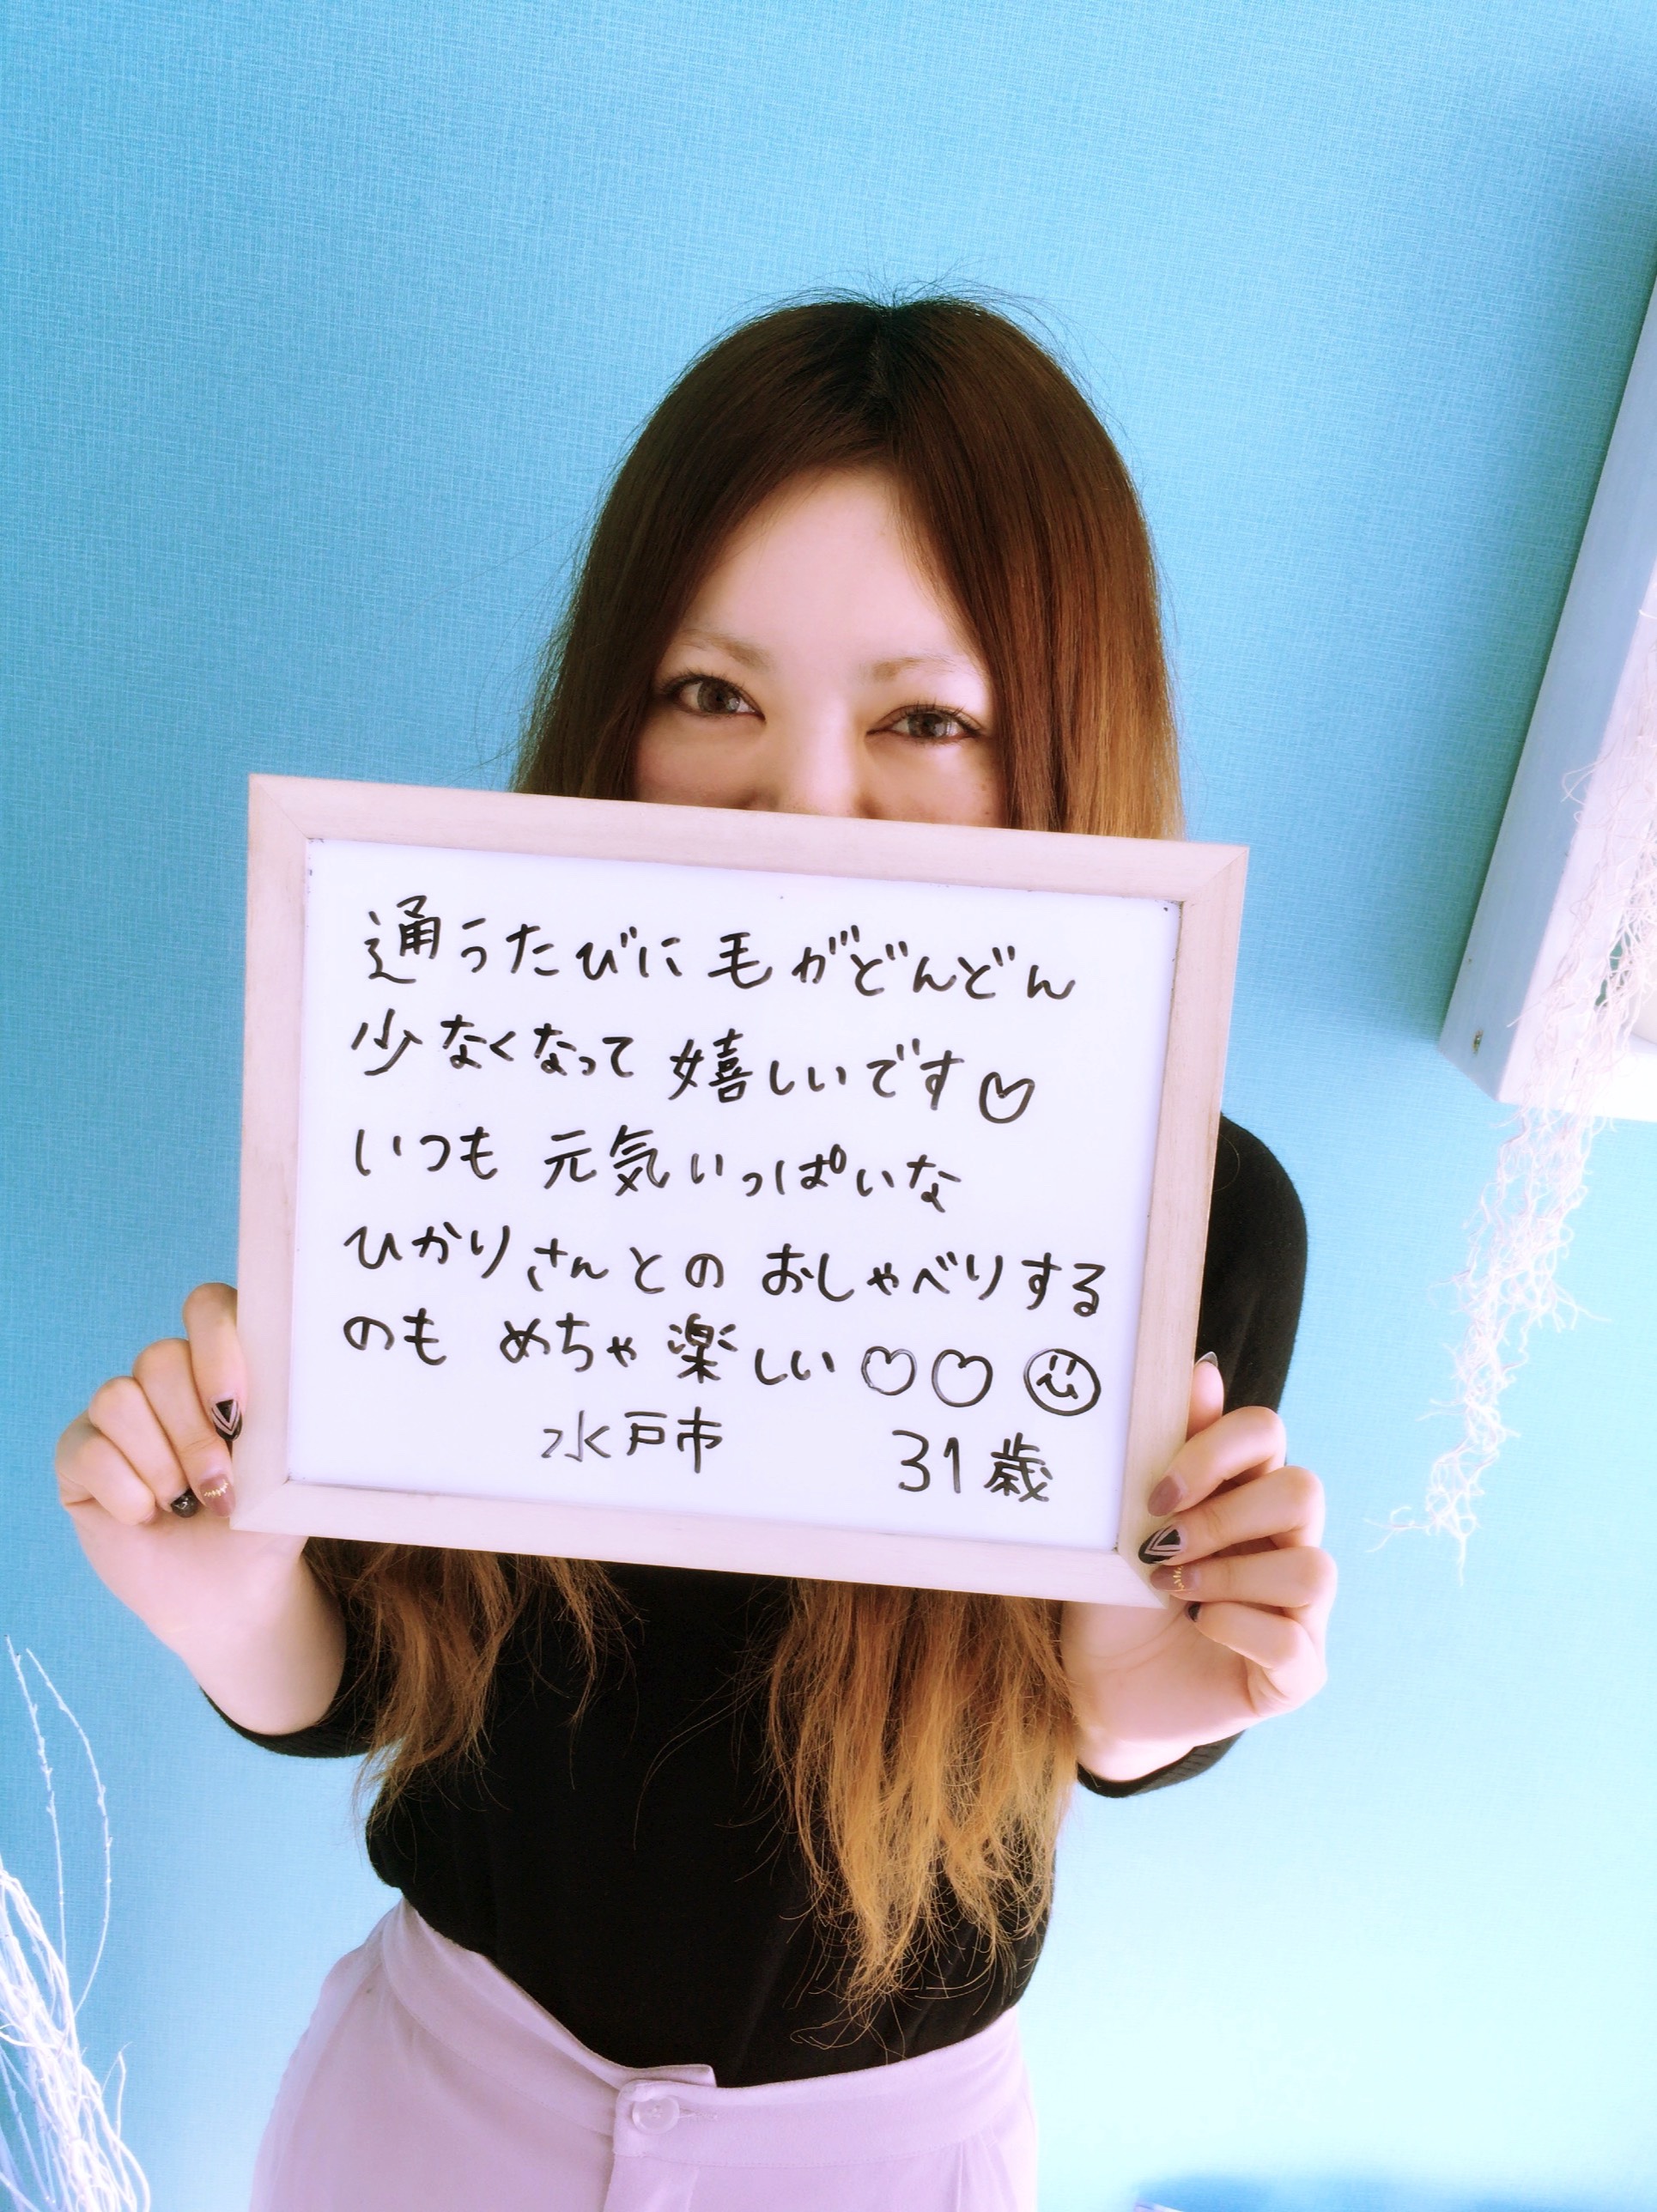 通うたびに毛がどんどん
少なくなって嬉しいです♡
いつも 元気いっぱいな
ひかりさんとの おしゃべりする
のも めちゃ楽しい♡♡☺
水戸市 31歳